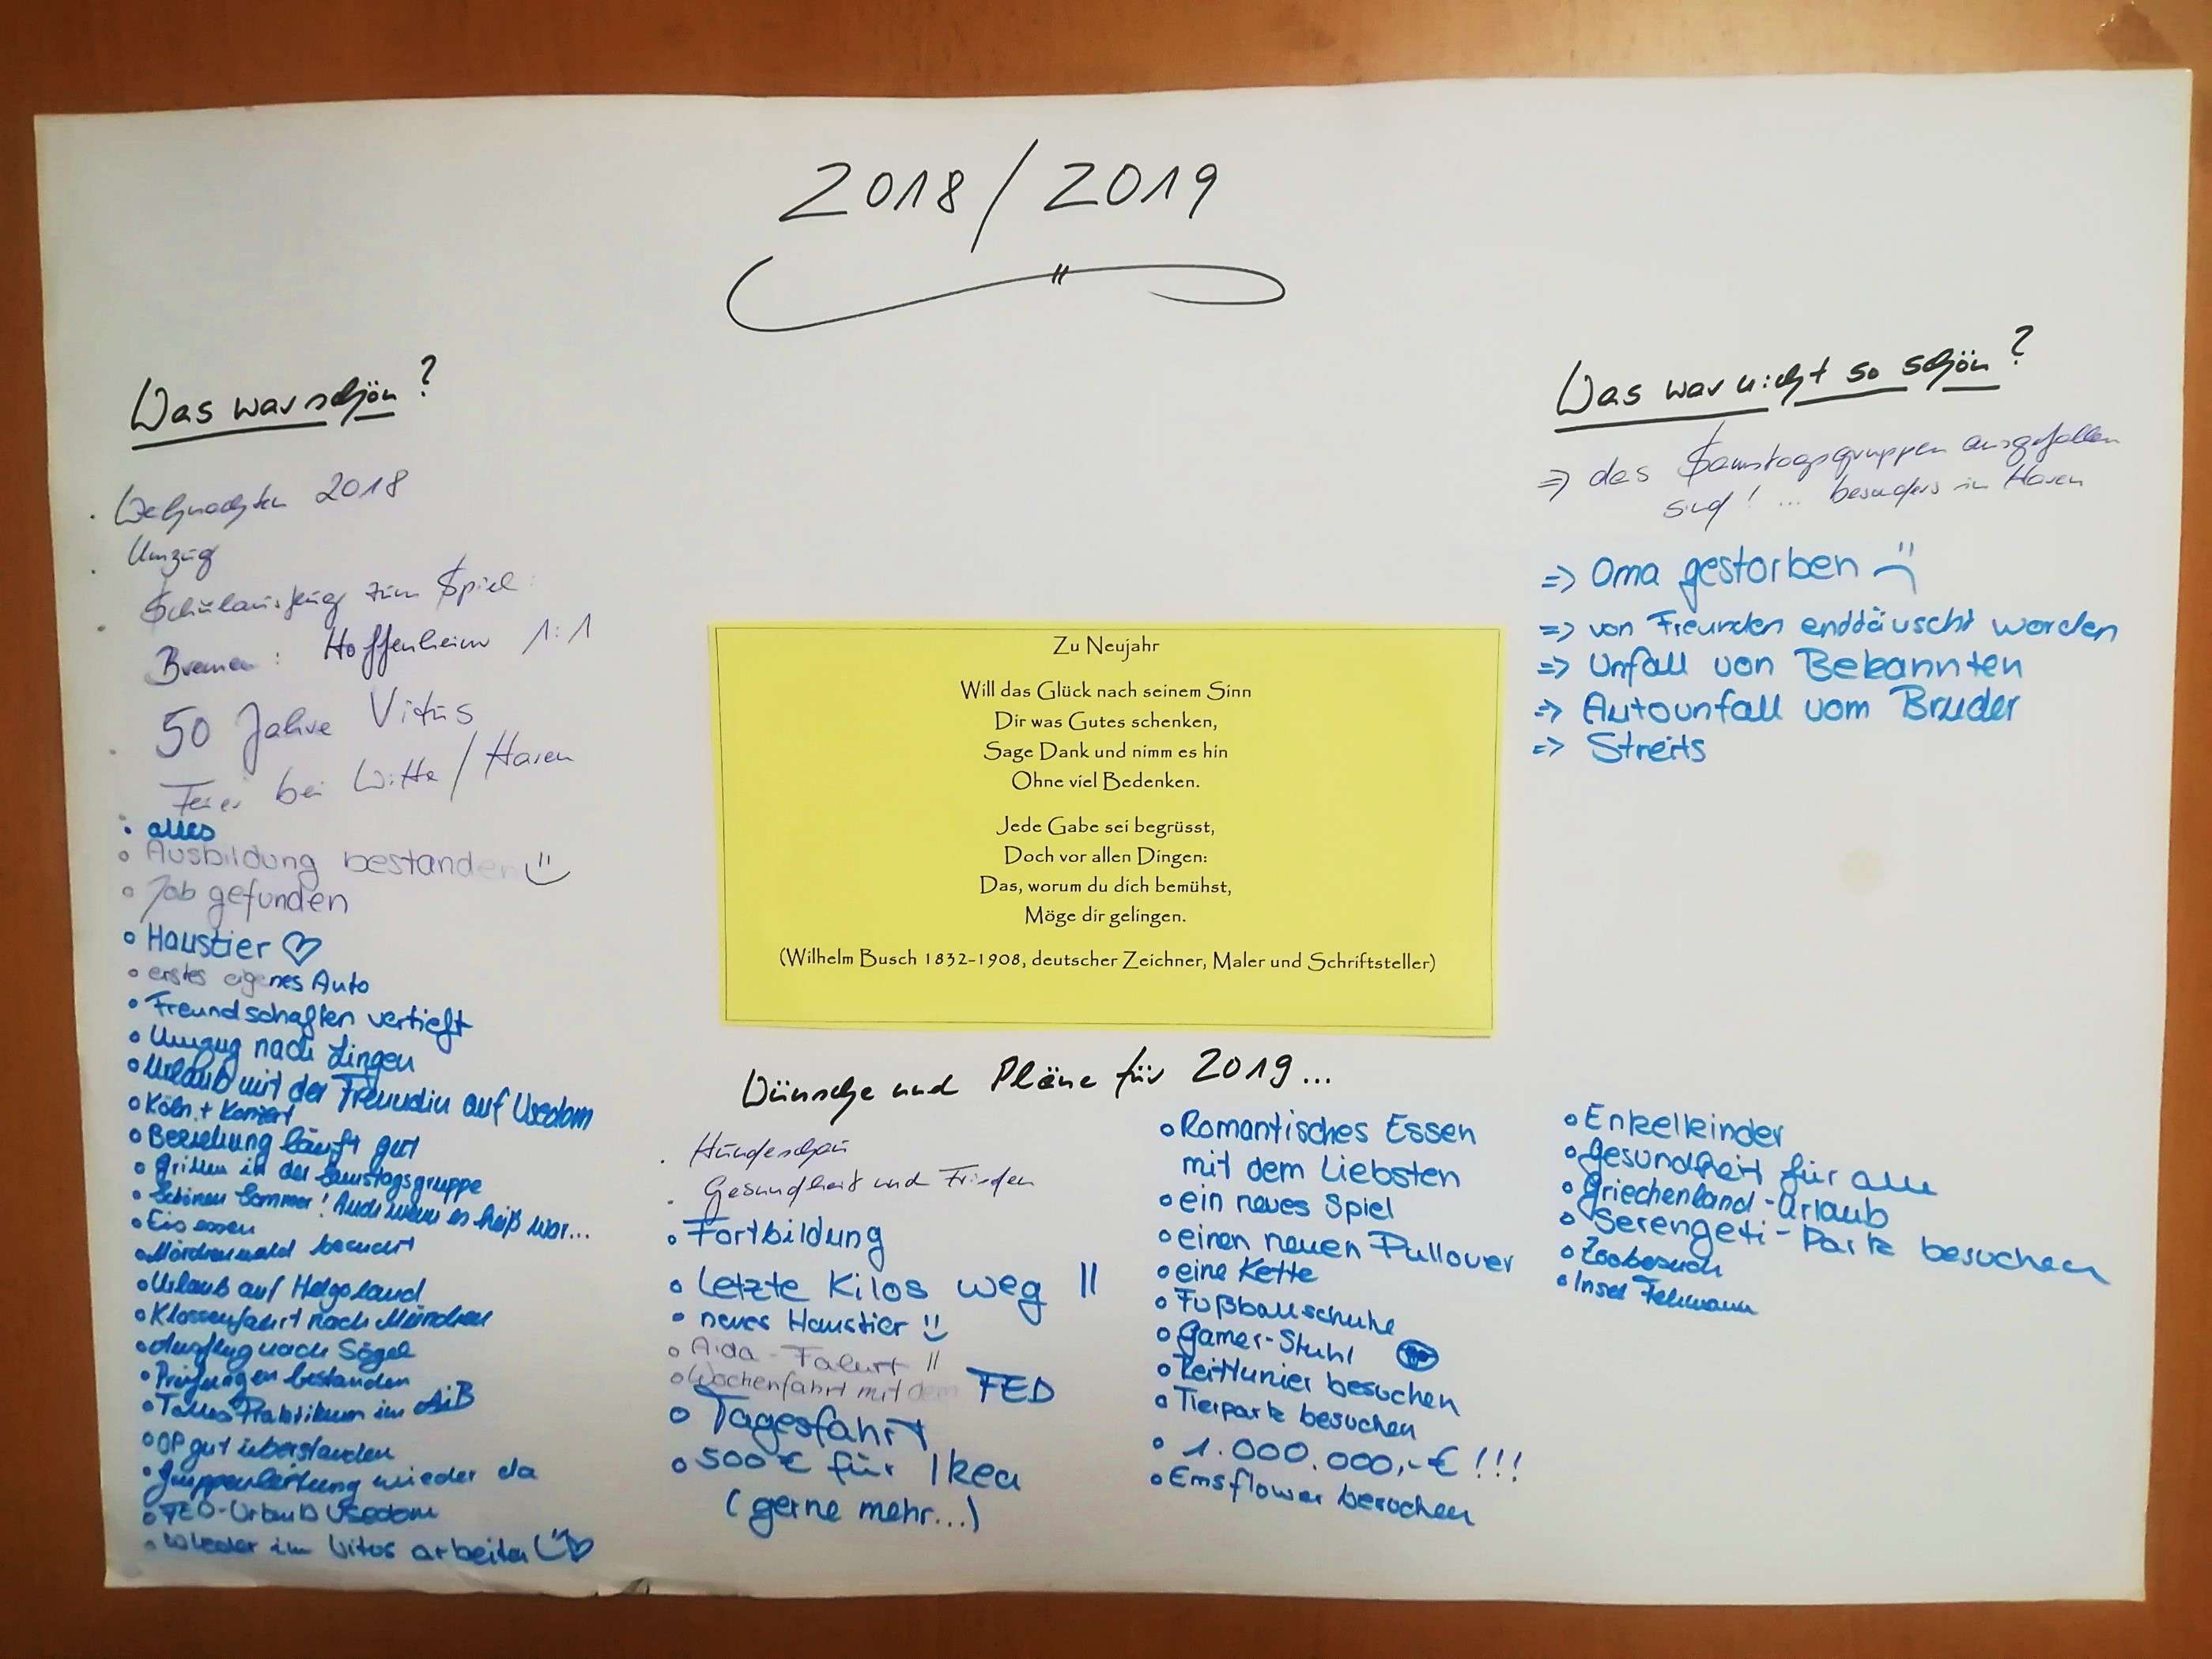 2018/2019
Was war schön?
. Weihnachten 2018
. Umzug
. Schulausflug zum Spiel:
Bremen: Hoffenheim 1:1
50 Jahre Vitus
. Feier bei Witte/Haren
• alles
• Ausbildung bestanden
• Job gefunden
• Haustier ♡
• erstes eigenes Auto
• Freundschaften vertieft
• Umzug nach Lingen
• Urlaub mit der Freundin auf Usedom
• Köln + Konzert
• Beziehung läuft gut
• Grillen in der Samstagsgruppe
• Schönen Sommer! Auch wenn es heiß war...
• Eis essen
• Märchenwald besucht
• Urlaub auf Helgoland
• Klassenfahrt nach München
• Ausflug nach Sögel
• Prüfungen bestanden
• Tolles Praktikum im AiB
• OP gut überstanden
• Gruppenleitung wieder da
• FED-Urlaub Usedom
• Wieder im Vitus arbeiten ♡
Was war nicht so schön?
=> das Samstagsgruppen ausgefallen
sind! ... besonders in Haren
=> Oma gestorben
=> von Freunden enddäuscht worden
=> Unfall von Bekannten
=> Autounfall vom Bruder
=> Streits
Zu Neujahr
Will das Glück nach seinem Sinn
Dir was Gutes schenken,
Sage Dank und nimm es hin
Ohne viel Bedenken.
Jede Gabe sei begrüsst,
Doch vor allen Dingen:
Das, worum du dich bemühst,
Möge dir gelingen.
(Wilhelm Busch 1832-1908, deutscher Zeichner, Maler und Schriftsteller)
Wünsche und Pläne für 2019...
. Hundeschau
. Gesundheit und Frieden
• Fortbildung
• letzte Kilos weg !!
• neues Haustier
• Aida-Fahrt !!
• Wochenfahrt mit dem FED
• Tagesfahrt
• 500€ für Ikea
(gerne mehr...)
• Romantisches Essen
mit dem Liebsten
• ein neues Spiel
• einen neuen Pullover
• eine Kette
• Fußballschuhe
• Gamer-Stuhl
• Reitturnier besuchen
• Tierpark besuchen
• 1.000.000,-€!!!
• Emsflower besuchen
• Enkelkinder
• Gesundheit für alle
• Griechenland-Urlaub
• Serengeti-Park besuchen
• Zoobesuch
• Insel Fehmann